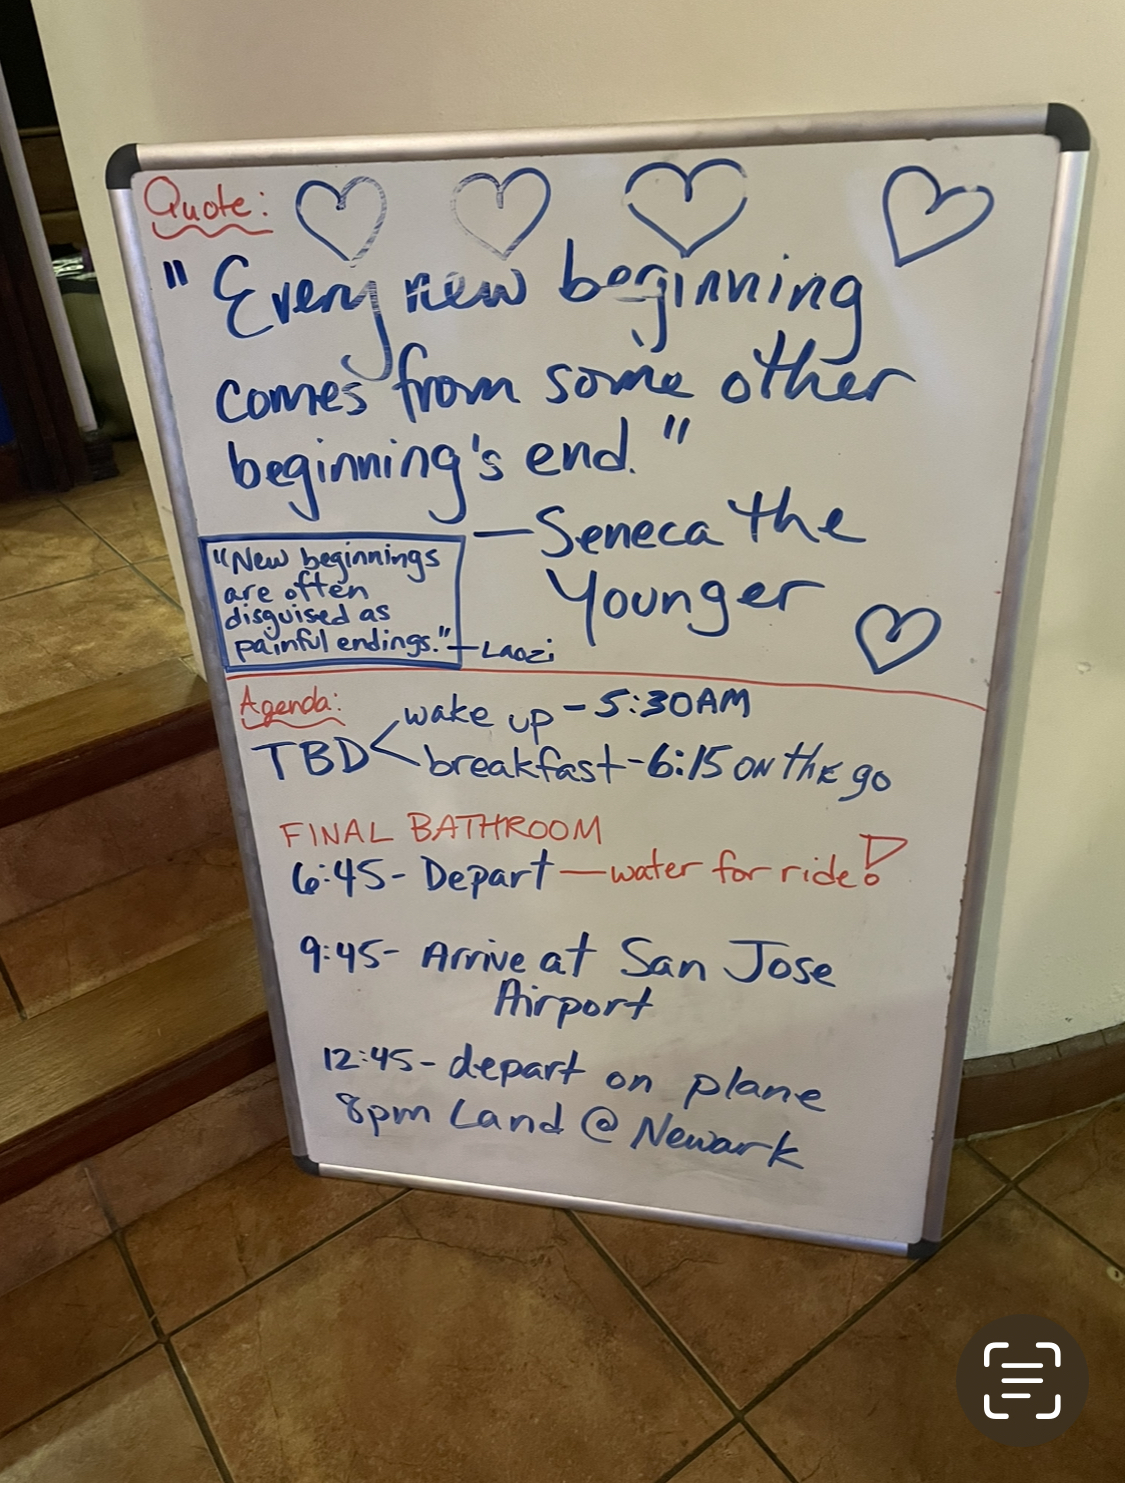 Quote:
"Every new beginning
comes from some other
beginning's end."
—Seneca the
Younger
"New beginnings
are often
disguised as
painful endings."—Laozi
Agenda:
wake up - 5:30AM
TBD
breakfast - 6:15 ON thE go
FINAL BATHROOM
6:45- Depart — water for ride!
9:45- Arrive at San Jose
Airport
12:45- depart on plane
8pm Land @ Newark